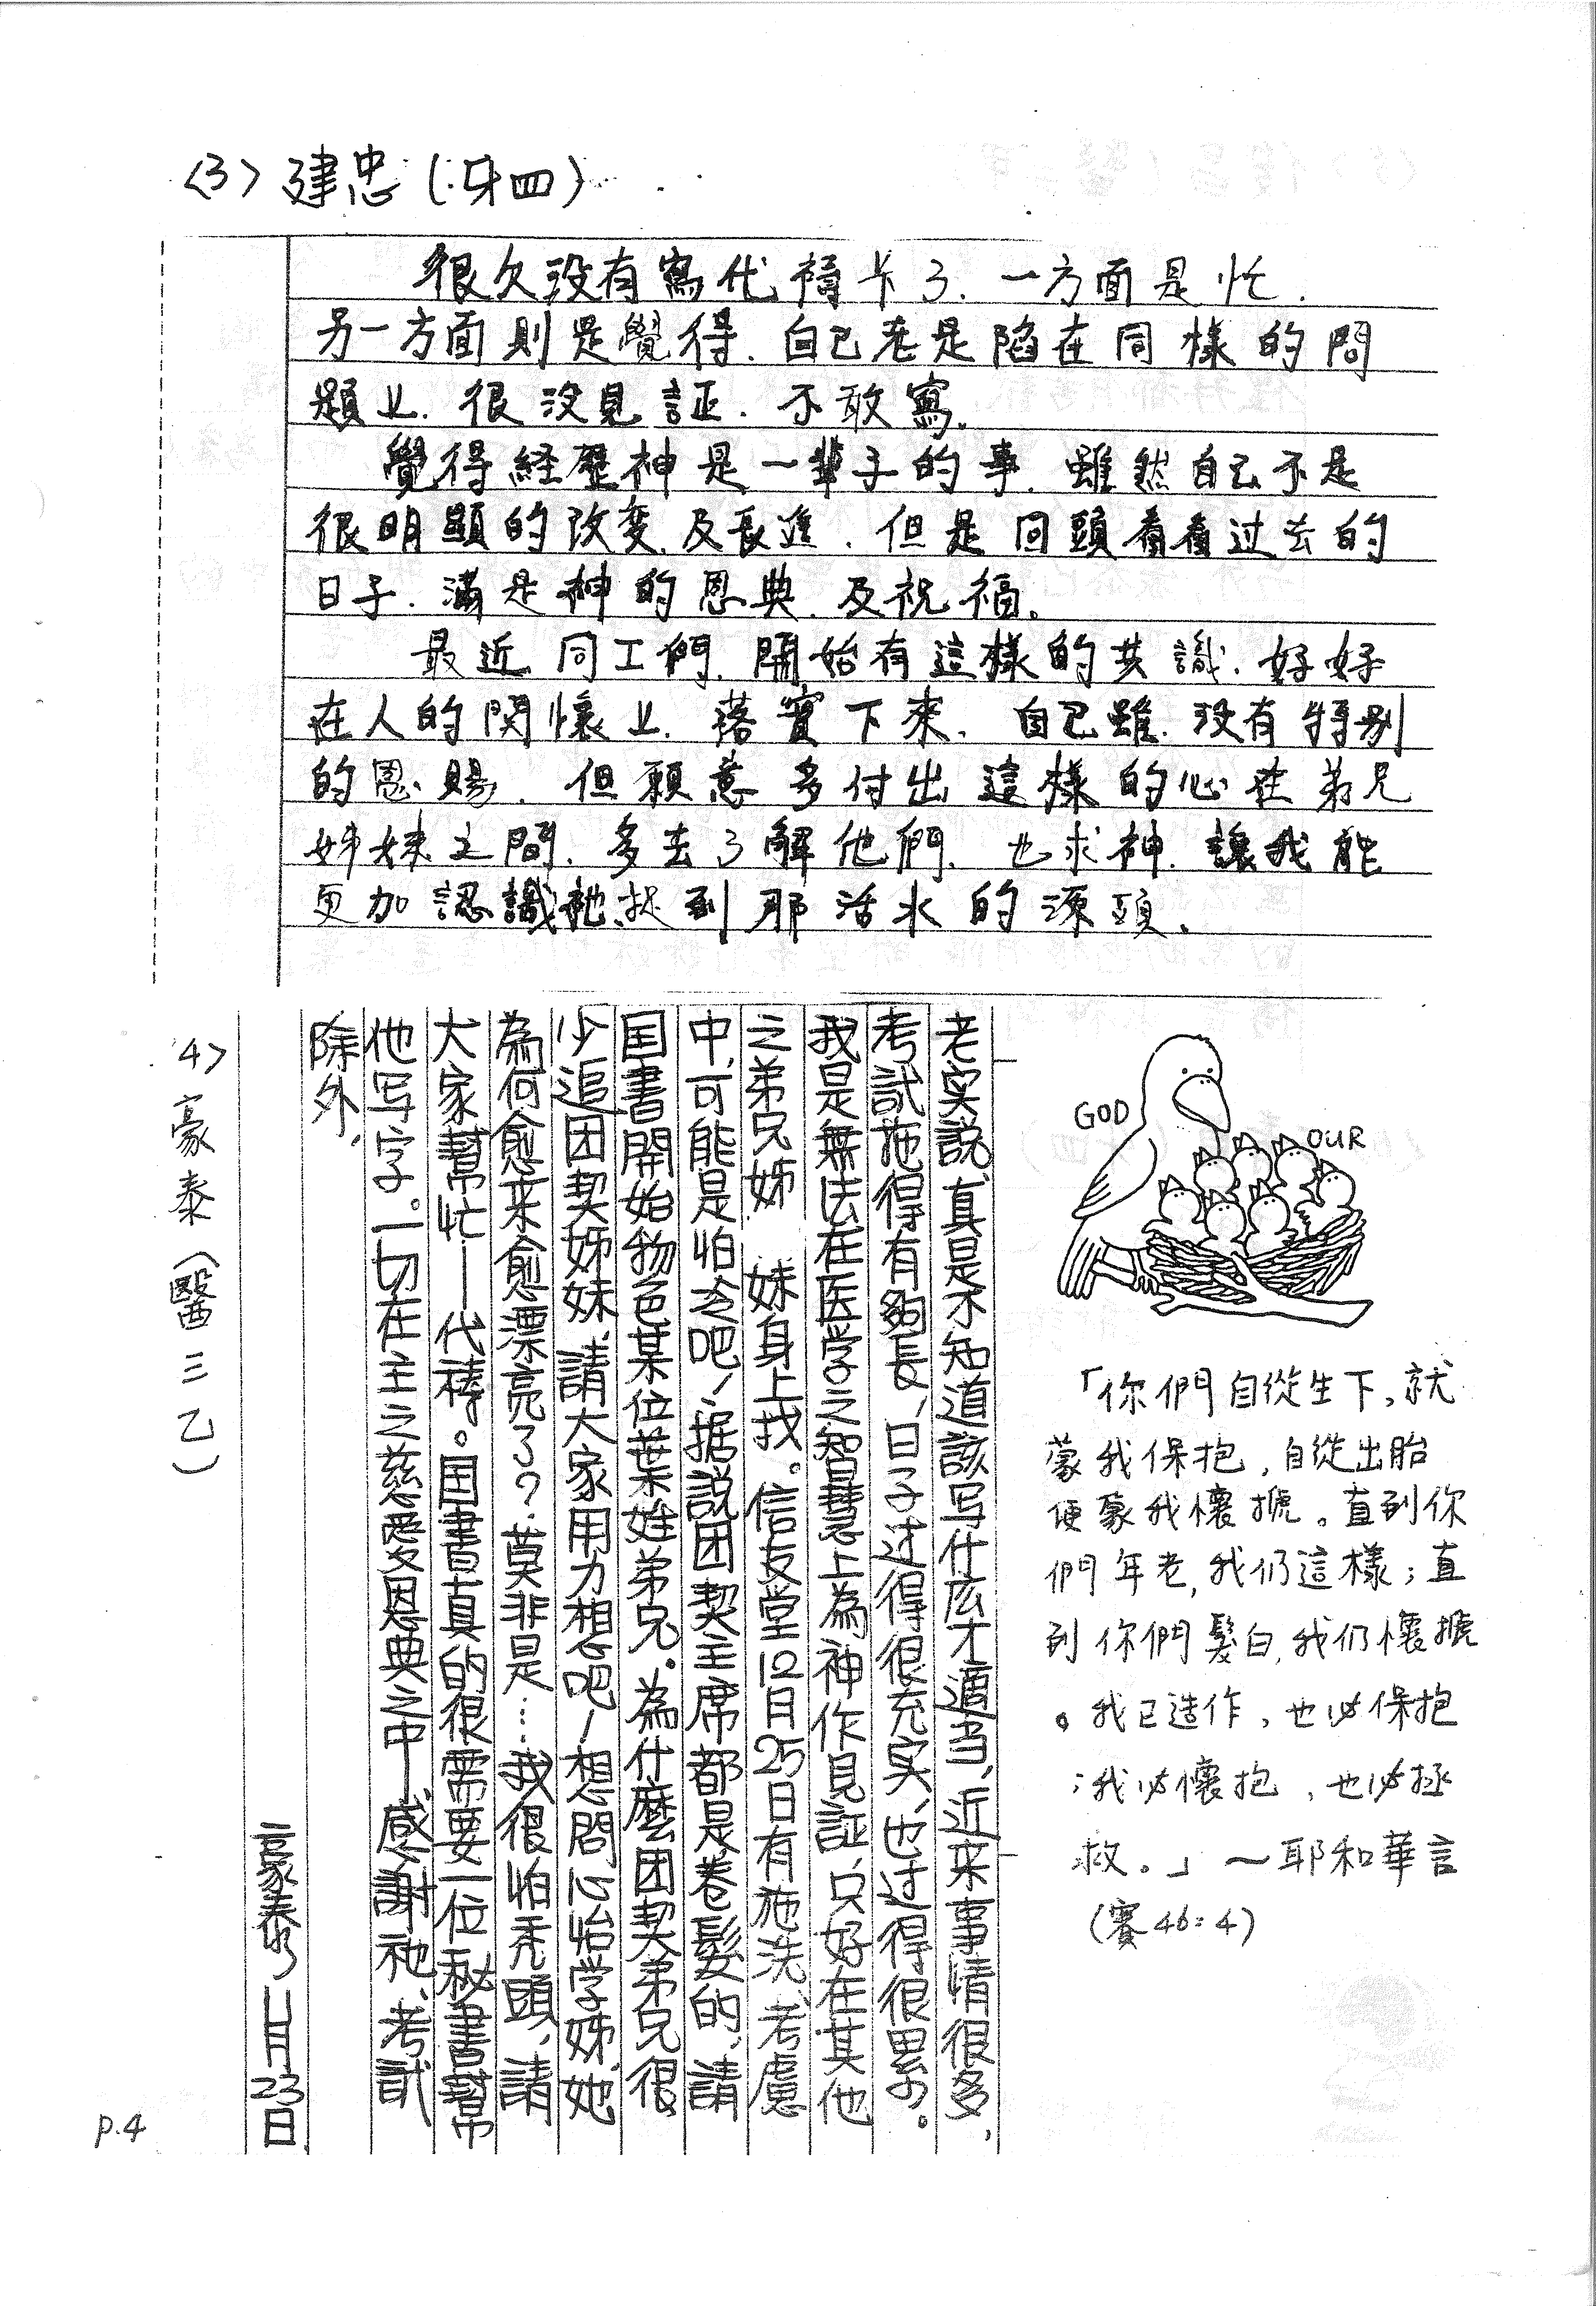 <3> 建忠(牙四)
很久没有寫代禱卡了.一方面是忙.
另一方面則是覺得.自己老是陷在同樣的問
題上.很没見証.不敢寫.
覺得経歷神是一輩子的事.雖然自己不是
很明顯的改変.及長進.但是回頭看看过去的
日子.滿是神的恩典.及祝福.
最近同工們.開始有這樣的共識.好好
在人的関懷上.落實下來.自己雖.没有特別
的恩賜.但願意多付出這樣的心在弟兄
姊妹之間.多去了解他們.也求神.讓我能
更加認識祂.找到那活水的源頭.
GOD
OUR
「你們自從生下,就
蒙我保抱,自從出胎
便蒙我懷搋。直到你
們年老,我仍這樣;直
到你們髮白,我仍懷搋
。我已造作,也必保抱
;我必懷抱,也必拯
救。」~耶和華言
(賽46:4)
4> 豪泰(醫三乙)
老実説,真是不知道該写什庅才適当,近来事情很多,
考試拖得有夠長,日子过得很充実,也过得很累。
我是無法在医学之智慧上為神作見証,只好在其他
之弟兄姊 妹身上找。信友堂12月25日有施洗,考慮
中,可能是怕冷吧!据説团契主席都是卷髮的,請
国書開始物色某位葉姓弟兄。為什麼团契弟兄很
少追团契姊妹,請大家用力想吧!想問心怡学姊,她
為何愈来愈漂亮了?莫非是……我很怕禿頭,請
大家幫忙——代禱。国書真的很需要一位秘書幫
他写字。一切在主之慈愛恩典之中,感謝祂,考試
除外.
豪泰 11月23日
P.4